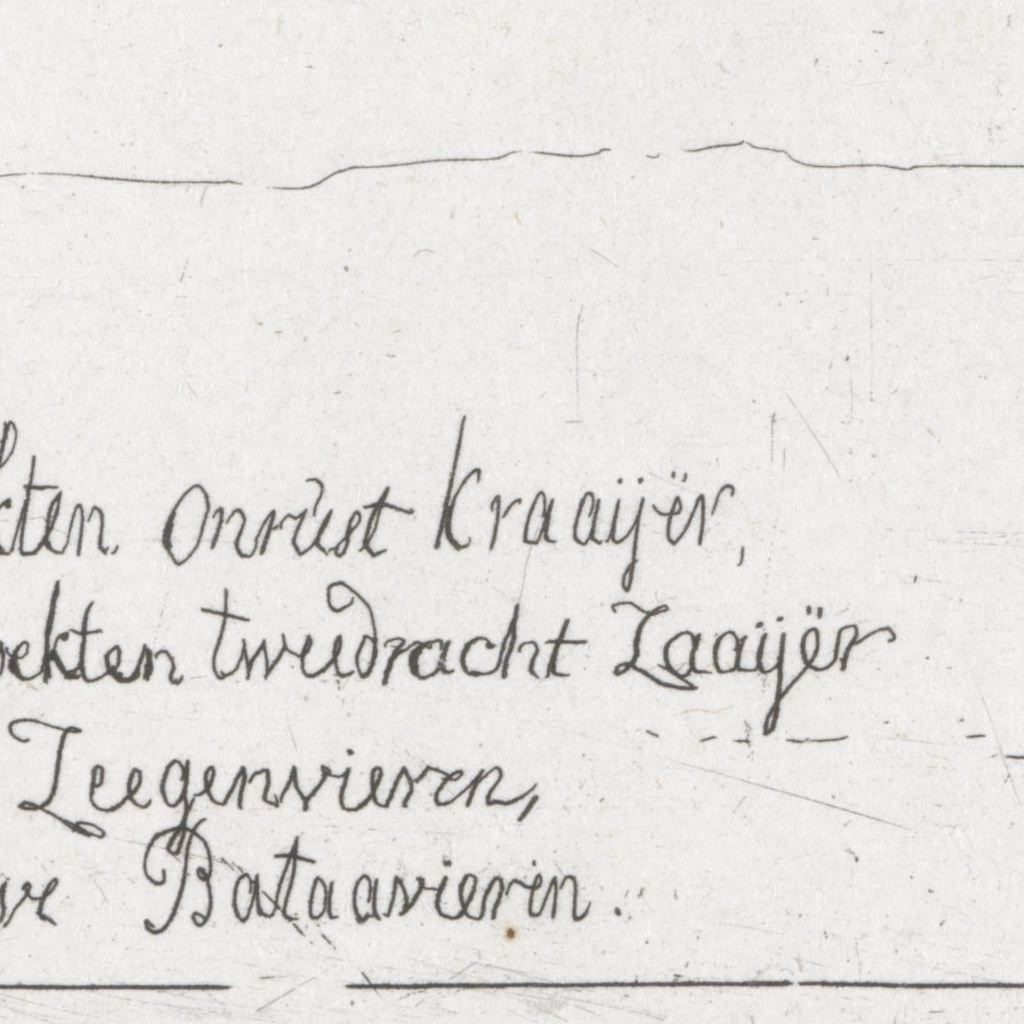 kten Onrust Kraaijër,
ekten tweedracht Zaaijër
Zeegenvieren,
ve Bataavieren.